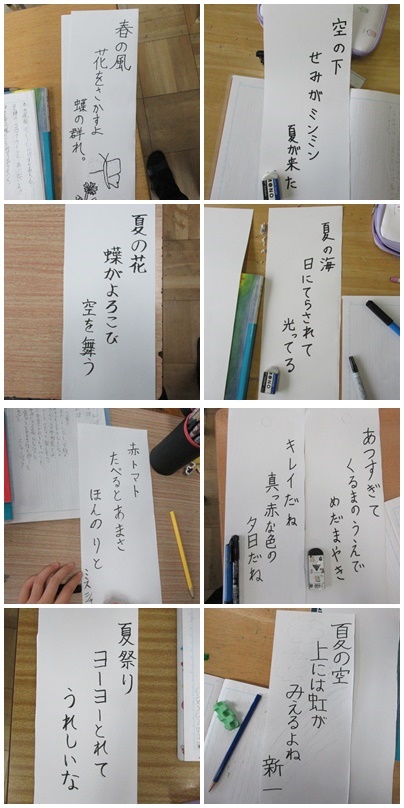 春の風
花をさかすよ
蝶の群れ。
空の下
せみがミンミン
夏が来た
夏の花
蝶がよろこび
空を舞う
夏の海
日にてらされて
光ってる
赤トマト
たべるとあまさ
ほんのりと
キレイだね
真っ赤な色の
夕日だね
あつすぎて
くるまのうえで
めだまやき
夏祭り
ヨーヨーとれて
うれしいな
夏の空
上には虹が
みえるよね
新一